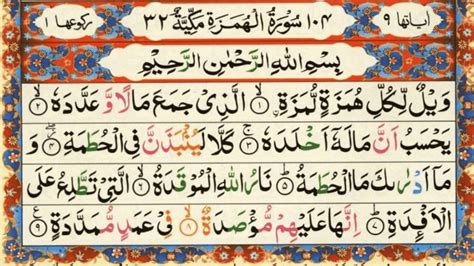 اٰیاتہا ٩ ١٠٤ سُوْرَةُ الْهُمَزَةِ مَكِّیَّةٌ ٣٢ رکوعہا ١
بِسْمِ اللهِ الرَّحْمٰنِ الرَّحِیْمِ
وَیْلٌ لِّكُلِّ هُمَزَةٍ لُّمَزَةِ ۙ﴿١﴾ الَّذِیْ جَمَعَ مَالًا وَّ عَدَّدَهٗ ۙ﴿٢﴾
یَحْسَبُ اَنَّ مَالَهٗۤ اَخْلَدَهٗ ۚ﴿٣﴾ كَلَّا لَیُنْۢبَذَنَّ فِی الْحُطَمَةِ ۖ﴿٤﴾ وَ
مَاۤ اَدْرٰىكَ مَا الْحُطَمَةُ ؕ﴿٥﴾ نَارُ اللهِ الْمُوْقَدَةُ ۙ﴿٦﴾ الَّتِیْ تَطَّلِعُ عَلَی
الْاَفْـِٕدَةِ ؕ﴿٧﴾ اِنَّهَا عَلَیْهِمْ مُّؤْصَدَةٌ ۙ﴿٨﴾ فِیْ عَمَدٍ مُّمَدَّدَةٍ ﴿٩﴾